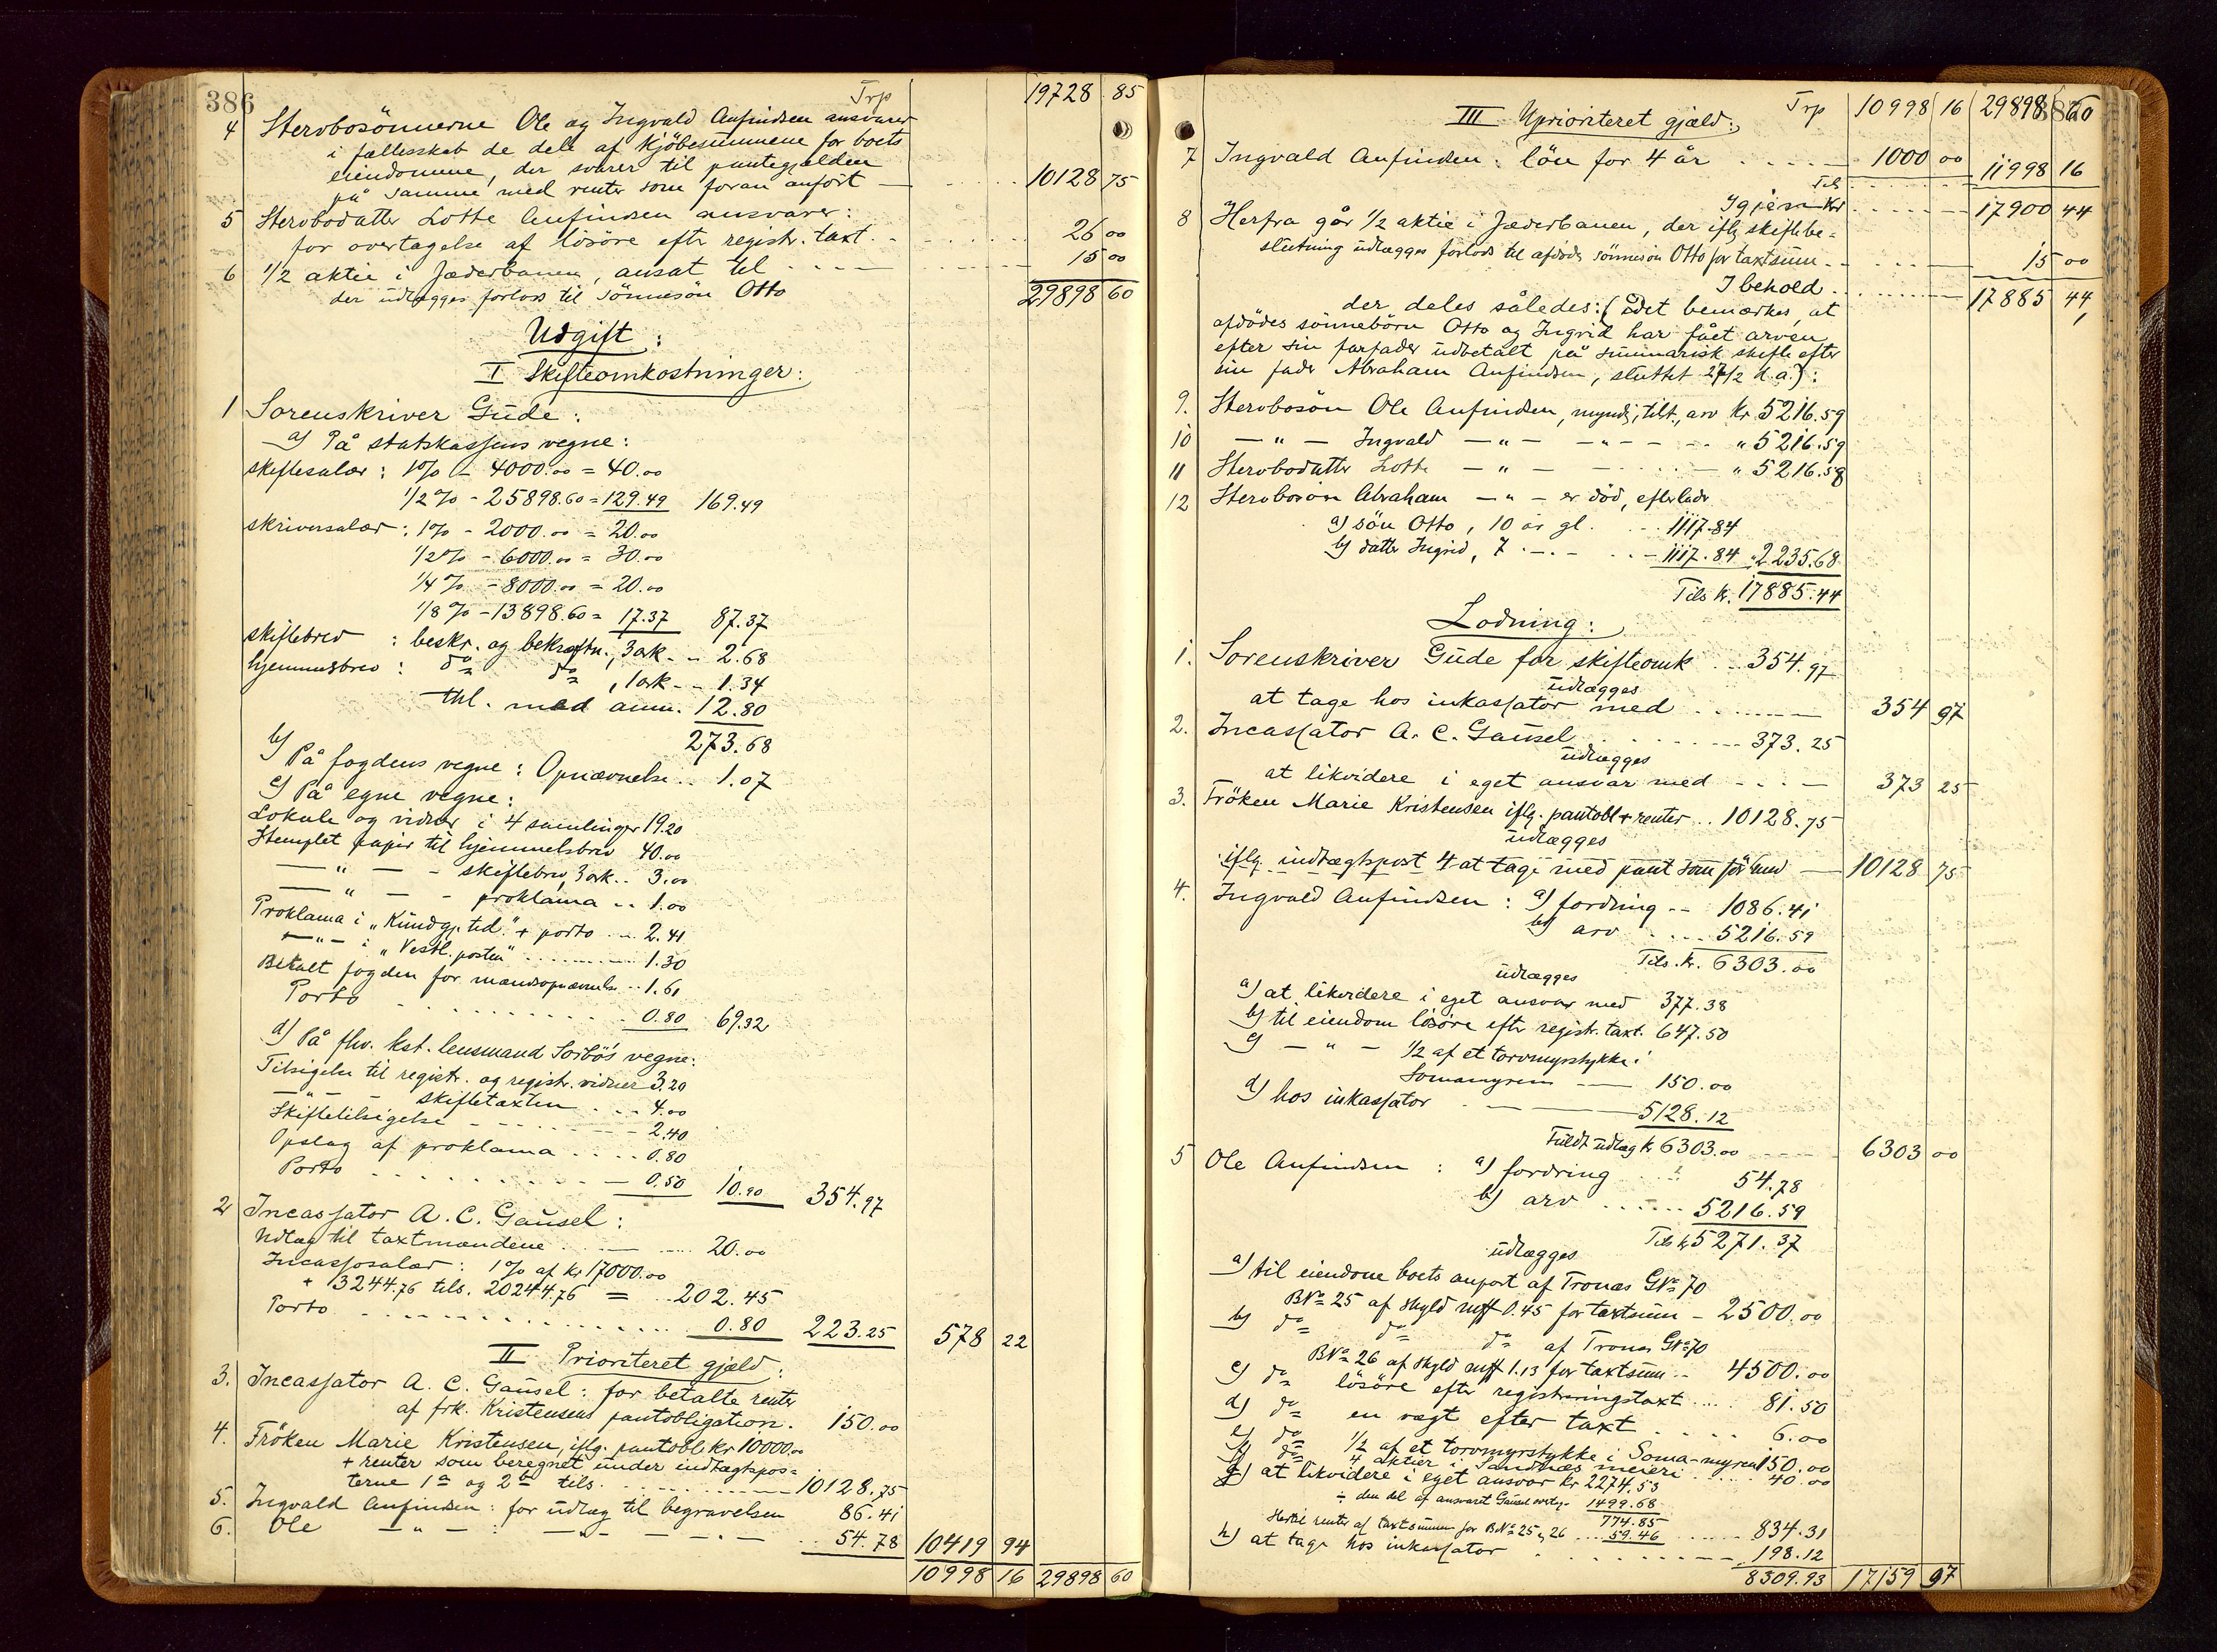 386
Trp 19728 85
4 Stervbosönnerne Ole og Ingvald Anfindsen ansvarer
i fællesskab de dele af kjöbesummene for boets
eiendomme, der svarer til pantegjælden
på samme med renter som foran anfört — 10128 75
5 Stervbodatter Lotte Anfindsen ansvarer:
for overtagelse af lösöre eftr registr. taxt. 26 00
6 1/2 aktie i Jæderbanen, ansat til 15 00
der udlægges forlods til sönnesön Otto 29898 60
Udgift:
I Skifteomkostninger:
1 Sorenskriver Gude:
a) På statskassens vegne:
skiftesalær: 1% - 4000.00 = 40.00
1/2% - 25898.60 = 129.49 169.49
skriversalær: 1% - 2000.00 = 20.00
1/2% - 6000.00 = 30.00
1/4% - 8000.00 = 20.00
1/8% - 13898.60 = 17.37 87.37
skiftebrev : beskr. og bekræftn., 3 ark - - 2.68
hjemmelsbrev : do do, 1 ark - - 1.34
thl. med anm. 12.80
273.68
b) På fogdens vegne: Opnævnelse .. 1.07
c) På egne vegne:
Lokale og vidner i 4 samlinger 19.20
Stemplet papir til hjemmelsbrev 40.00
— " — - skiftebrev, 3 ark .. 3.00
— " — - proklama .. 1.00
Proklama i „Kundgj. tid." + porto ... 2.41
— " — i „Vestl. posten" ... 1.30
Betalt fogden for mandsopnævnelse .. 1.61
Porto 0.80 69.32
d) På fhv. kst. lensmand Sorbö's vegne:
Tilsigelse til registr. og registr. vidner 3.20
— " — - skiftetaxten 4.00
Skiftetilsigelse 2.40
Opslag af proklama 0.80
Porto 0.50 10.90 354.97
2 Incassator A. C. Gausel:
Udlæg til taxtmændene 20.00
Incassosalær: 1% af kr 17000.00
+ 3244.76 tils. 20244.76 = 202.45
Porto 0.80 223.25 578 22
II Prioriteret gjæld:
3. Incassator A. C. Gausel: for betalte renter
af frk. Kristensens pantobligation. 150.00
4. Fröken Marie Kristensen, iflg. pantobl. kr 10000.00
+ renter som beregnet under indtægtspos=
terne 1a og 2b tils. 10128.75
5. Ingvald Anfindsen: for udlæg til begravelsen 86.41
6. Ole — " — : — " — 54.78 10419 94
10998 16 29898 60
387
III Uprioriteret gjæld: Trp 10998 16 29898 60
7 Ingvald Anfindsen: lön for 4 år 1000 00
Tils 11998 16
Igjen Kr 17900 44
8 Herfra går 1/2 aktie i Jæderbanen, der iflg skiftebe=
slutning udlægges forlods til afdödes sönnesön Otto for taxtsum 15 00
I behold 17885 44
der deles således: (idet bemærkes, at
afdödes sönnebörn Otto og Ingrid har fået arven
efter sin farfader udbetalt på summarisk skifte efter
sin fader Abraham Anfindsen, sluttet 27/2 d.a.):
9. Stervbosön Ole Anfindsen, myndig, tilst. arv kr 5216.59
10 — " — Ingvald — " — — " — " 5216.59
11 Stervbodatter Lotte — " — " 5216.58
12 Stervbosön Abraham — " — er död, efterlader
a) sön Otto, 10 år gl. 1117.84
b) datter Ingrid, 7 - . - 1117.84 " 2235.68
Tils kr. 17885.44
Lodning:
1. Sorenskriver Gude for skifteomk 354.97
udlægges
at tage hos inkassator med 354 97
2. Incassator A. C. Gausel 373.25
udlægges
at likvidere i eget ansvar med 373 25
3. Fröken Marie Kristensen iflg. pantobl + renter .. 10128.75
udlægges
iflg. indtægtspost 4 at tage med pant som för hun — 10128 75
4. Ingvald Anfindsen: a) fordring -- 1086.41
b) arv 5216.59
Tils. kr. 6303.00
udlægges
a) at likvidere i eget ansvar med 377.38
b) til eiendom lösöre eftr registr. taxt. 647.50
c) — " — 1/2 af et torvmyrstykke i
Somamyren — 150.00
d) hos inkassator 5128.12
Fuldt udlæg kr 6303.00 6303 00
5 Ole Anfindsen : a) fordring 54.78
b) arv 5216.59
Tils kr 5271.37
udlægges
a) til eiendom boets anpart af Tronæs GNo 70
BNo 25 af skyld mk 0.45 for taxtsum - 2500.00
b) do do do af Tronæs GNo 70
BNo 26 af skyld mk 1.13 for taxtsum -- 4500.00
c) do lösöre eftr registreringstaxt 81.50
d) do en vægt efter taxt 6.00
e) do 1/2 af et torvmyrstykke i Soma-myren 150.00
f) do 4 aktier i Sandnæs meieri 40.00
g) at likvidere i eget ansvar kr 2274.53
÷ den del af ansvaret Gausel overtog 1499.68
774.85
Hertil renter af taxtsummen for BNo 25 og 26 59.46 834.31
h) at tage hos inkassator 198.12
8309.93 17159 97